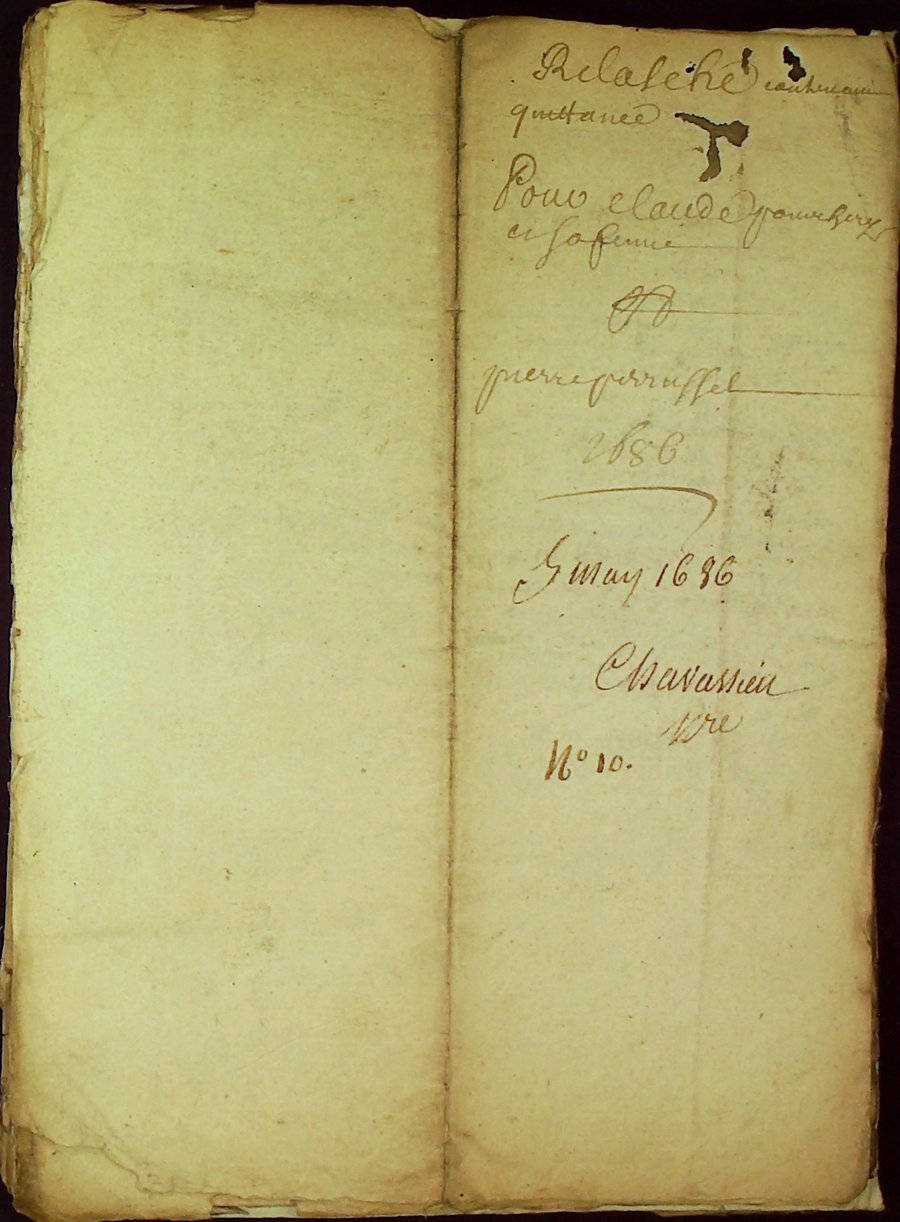 Relasche contenant
quittance
Pour Claude
et sa femme
Et
pierre perrussel
1686
5 may 1686
Chavassieu
nre
No 10.